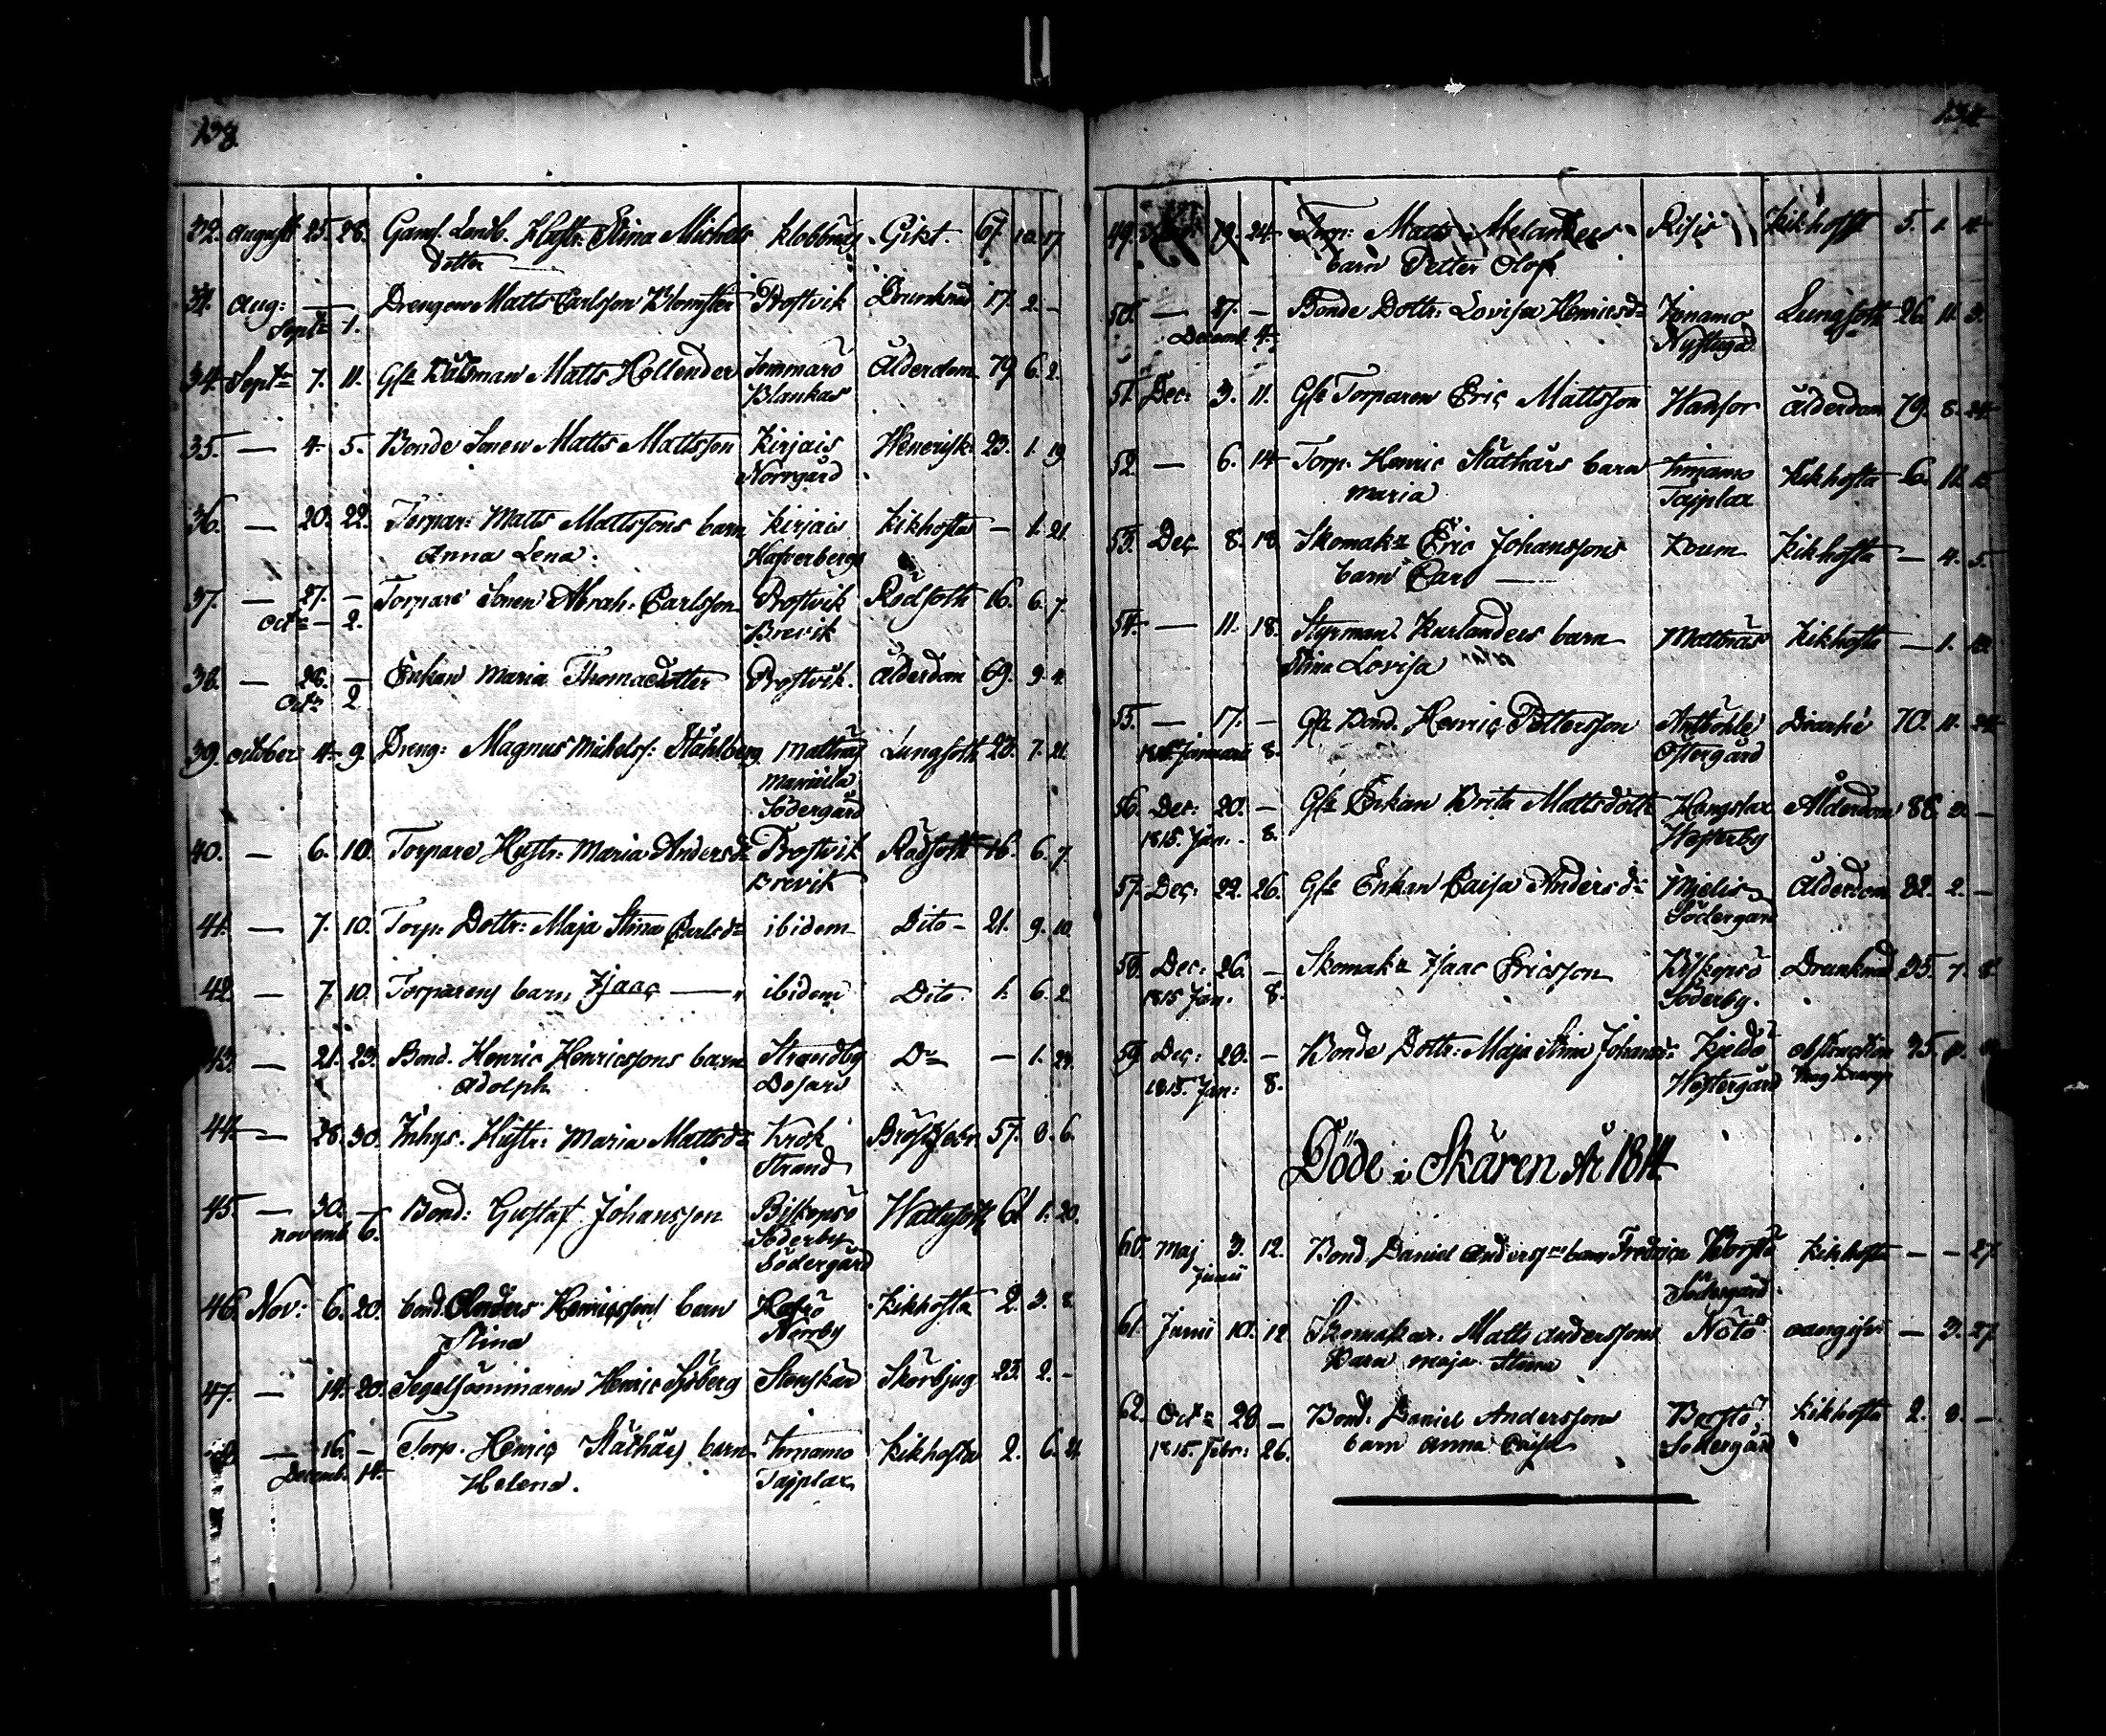 138.
32. August 25. 28. Gaml. Landb. Hustr: Stina Michels Klobbnäs Gikt. 67. 10. 17
dotter
Aug: — Drengen Matts Carlsson Blomster Prostvik Drunknad 17. 2. -
Septr 1.
34. Septr 7. 11. Gle Båtsman Matts Hollender Simmarö Ålderdom 79 6. 2.
Blankas
35. — 4. 5. Bonde Sonen Matts Mattsson Kirjais Venerisk. 23. 1. 19
Norrgård
36. — 20. 22. Torpar: Matts Mattssons barn Kirjais Kikhosta — 1. 21.
Anna Lena.
37. — 27. — Torpare Sonen Abrah: Carlsson Prostvik Rödsoth 16. 6. 7.
Octr — 2. Brevik
38. — 28. — Enkan Maria Thomasdotter Prostvik. Ålderdom 69. 9. 4.
Octr 2
39. October 4. 9. Dreng: Magnus Mickels: Ståhlberg Mattnäs Lungsoth 28. 7. 21.
Södergård
40. — 6. 10. Torpare Hustr: Maria Andersdr Prostvik Rödsoth 46. 6. 7
Brevik
41. — 7. 10. Torp: Dottr: Maja Stina Carlsdr ibidem Dito - 21. 9. 10.
42. — 7. 10. Torparens barn Isaac — ibidem Dito. 1. 6. 2
43. — 21. 23. Bond. Henric Henricssons barn Strandby Do — 1. 24.
Adolph
44. — 28. 30. Inhys. Hustr: Maria Mattsdr Krok Bröstfeber 57. 8. 6.
Strand
45. — 30. — Bond: Gustaf Johansson Biskopsö Wattusoth 61. 1. 20.
Novemb. 6. Söderby
Södergård
46. Nov: 6. 20. bond. Anders Henricssons barn Hafsö Kikhosta 2. 3. 8.
Stina Norrby
47. — 14. 20. Segelsömmaren Henric Sjöberg Stenskär Skörbjug 23. 2. -
48. — 16. — Torp. Henric Ståthårs barn Immamo Kikhosta 2. 6. 21
Decemb. 14. Helena. Tajplax
134
49. 19. 24. Torp: Matts Melanders Risis Kikhosta 5. 1. 4
barn Petter Olof
50. — 27. — Bonde Dottr: Lovisa Henricsdr Immamo Lungsoth 26. 11. 3.
Decemb. 4. Nystugad
51. Dec: 3. 11. Gle Torparen Eric Mattsson Wansor Ålderdom 79. 8. 24
52. — 6. 14 Torp. Henric Ståthårs barn Immamo Kikhosta 6. 11. 15
Maria Tajplax
53. Dec 8. 18. Skomakr Eric Johanssons Koum Kikhosta — 4. 5.
barn Carl —
54. — 11. 18. Styrman: Kurlanders barn Mattnäs Kikhosta — 1.
Stina Lovisa
55. — 17. — Gle Bond. Henric Pettersson Diarhé 70. 11. 24
1815. Januarii 8. Östergård
56. Dec: 20. — Gle Enkan Brita Mattsdottr Hangslax Ålderdom 88. —
1815. Jan. 8. Westerby
57. Dec: 22. 26. Gle Enkan Caisa Andersdr Mielis Ålderdom 82. 2. —
Södergård
58. Dec: 26. — Skomakr Isaac Ericsson Biskopsö Drunknad 35. 7. 8.
1815 Jan. 8. Söderby.
59. Dec: 28. — Bonde Dottr: Maja Stina Johansdr Kjeldö obstruction
1815. Jan: 8. Westergård
Döde i Skären År 1814
60. Maj 3. 12. Bond. Daniel Anderss: barn Fredrica Borstö Kikhosta — — 27.
Junii Södergård.
61. Junii 10. 12. Skomakar: Matts Anderssons Nötö oangifvi — 3. 27.
Barn Maja Stina
62. Octr 28 — Bond: Daniel Anderssons Borstö Kikhosta 2. 8. —
1815. Febr: 26. barn Anna Caisa Södergård